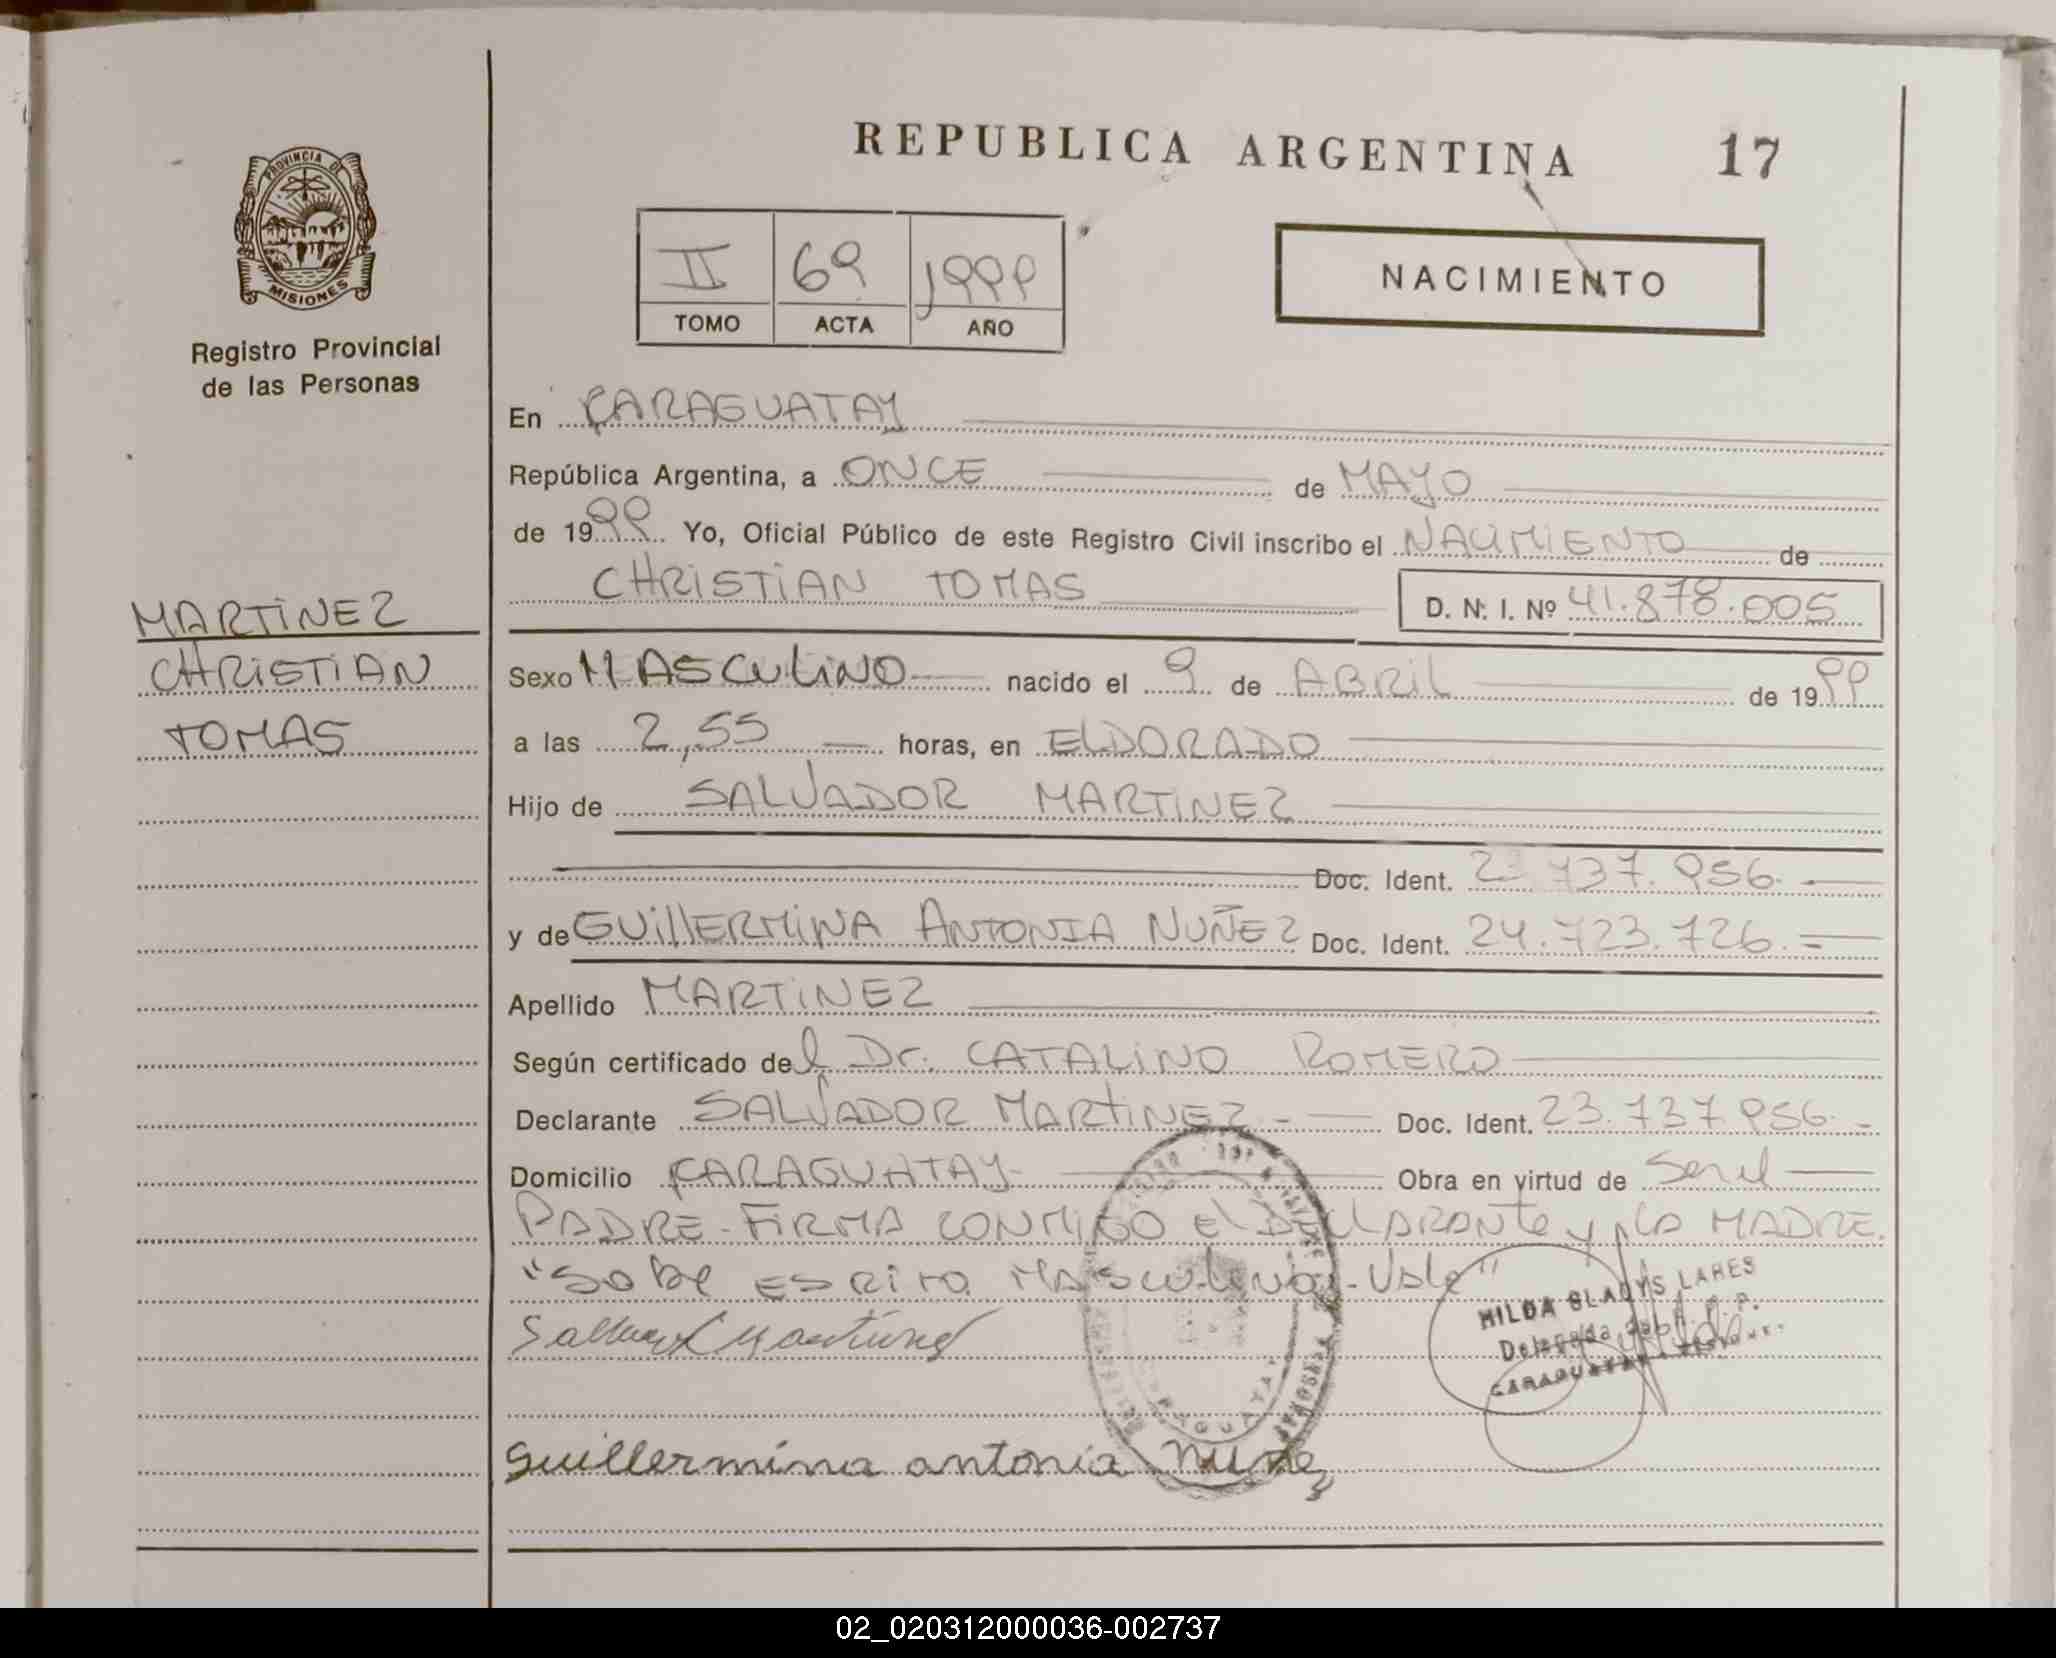 REPUBLICA ARGENTINA 17
PROVINCIA DE
MISIONES
Registro Provincial
de las Personas
II 69 1999
TOMO ACTA AÑO
NACIMIENTO
En CARAGUATAY
República Argentina, a ONCE de MAYO
de 1999 Yo, Oficial Público de este Registro Civil inscribo el NACIMIENTO de
CHRISTIAN TOMAS D. N. I. Nº 41.878.005
MARTINEZ
CHRISTIAN
TOMAS
Sexo MASCULINO nacido el 9 de ABRIL de 1999
a las 2,55 horas, en ELDORADO
Hijo de SALVADOR MARTINEZ
Doc. Ident. 23.737.956.
y de GUILLERMINA ANTONIA NUÑEZ Doc. Ident. 24.723.726.
Apellido MARTINEZ
Según certificado del Dr. CATALINO ROMERO
Declarante SALVADOR MARTINEZ.- Doc. Ident. 23.737.956.-
Domicilio CARAGUATAY- Obra en virtud de Ser el
PADRE-FIRMA CONMIGO El DECLARANTE y LA MADRE.
"Sobre ESCRITO MASCULINO-Vale"
Salvador Martinez
HILDA GLADYS
Delegada
CARAGUATAY
CARAGUATAY
Guillermina antonia nuñez
02_020312000036-002737